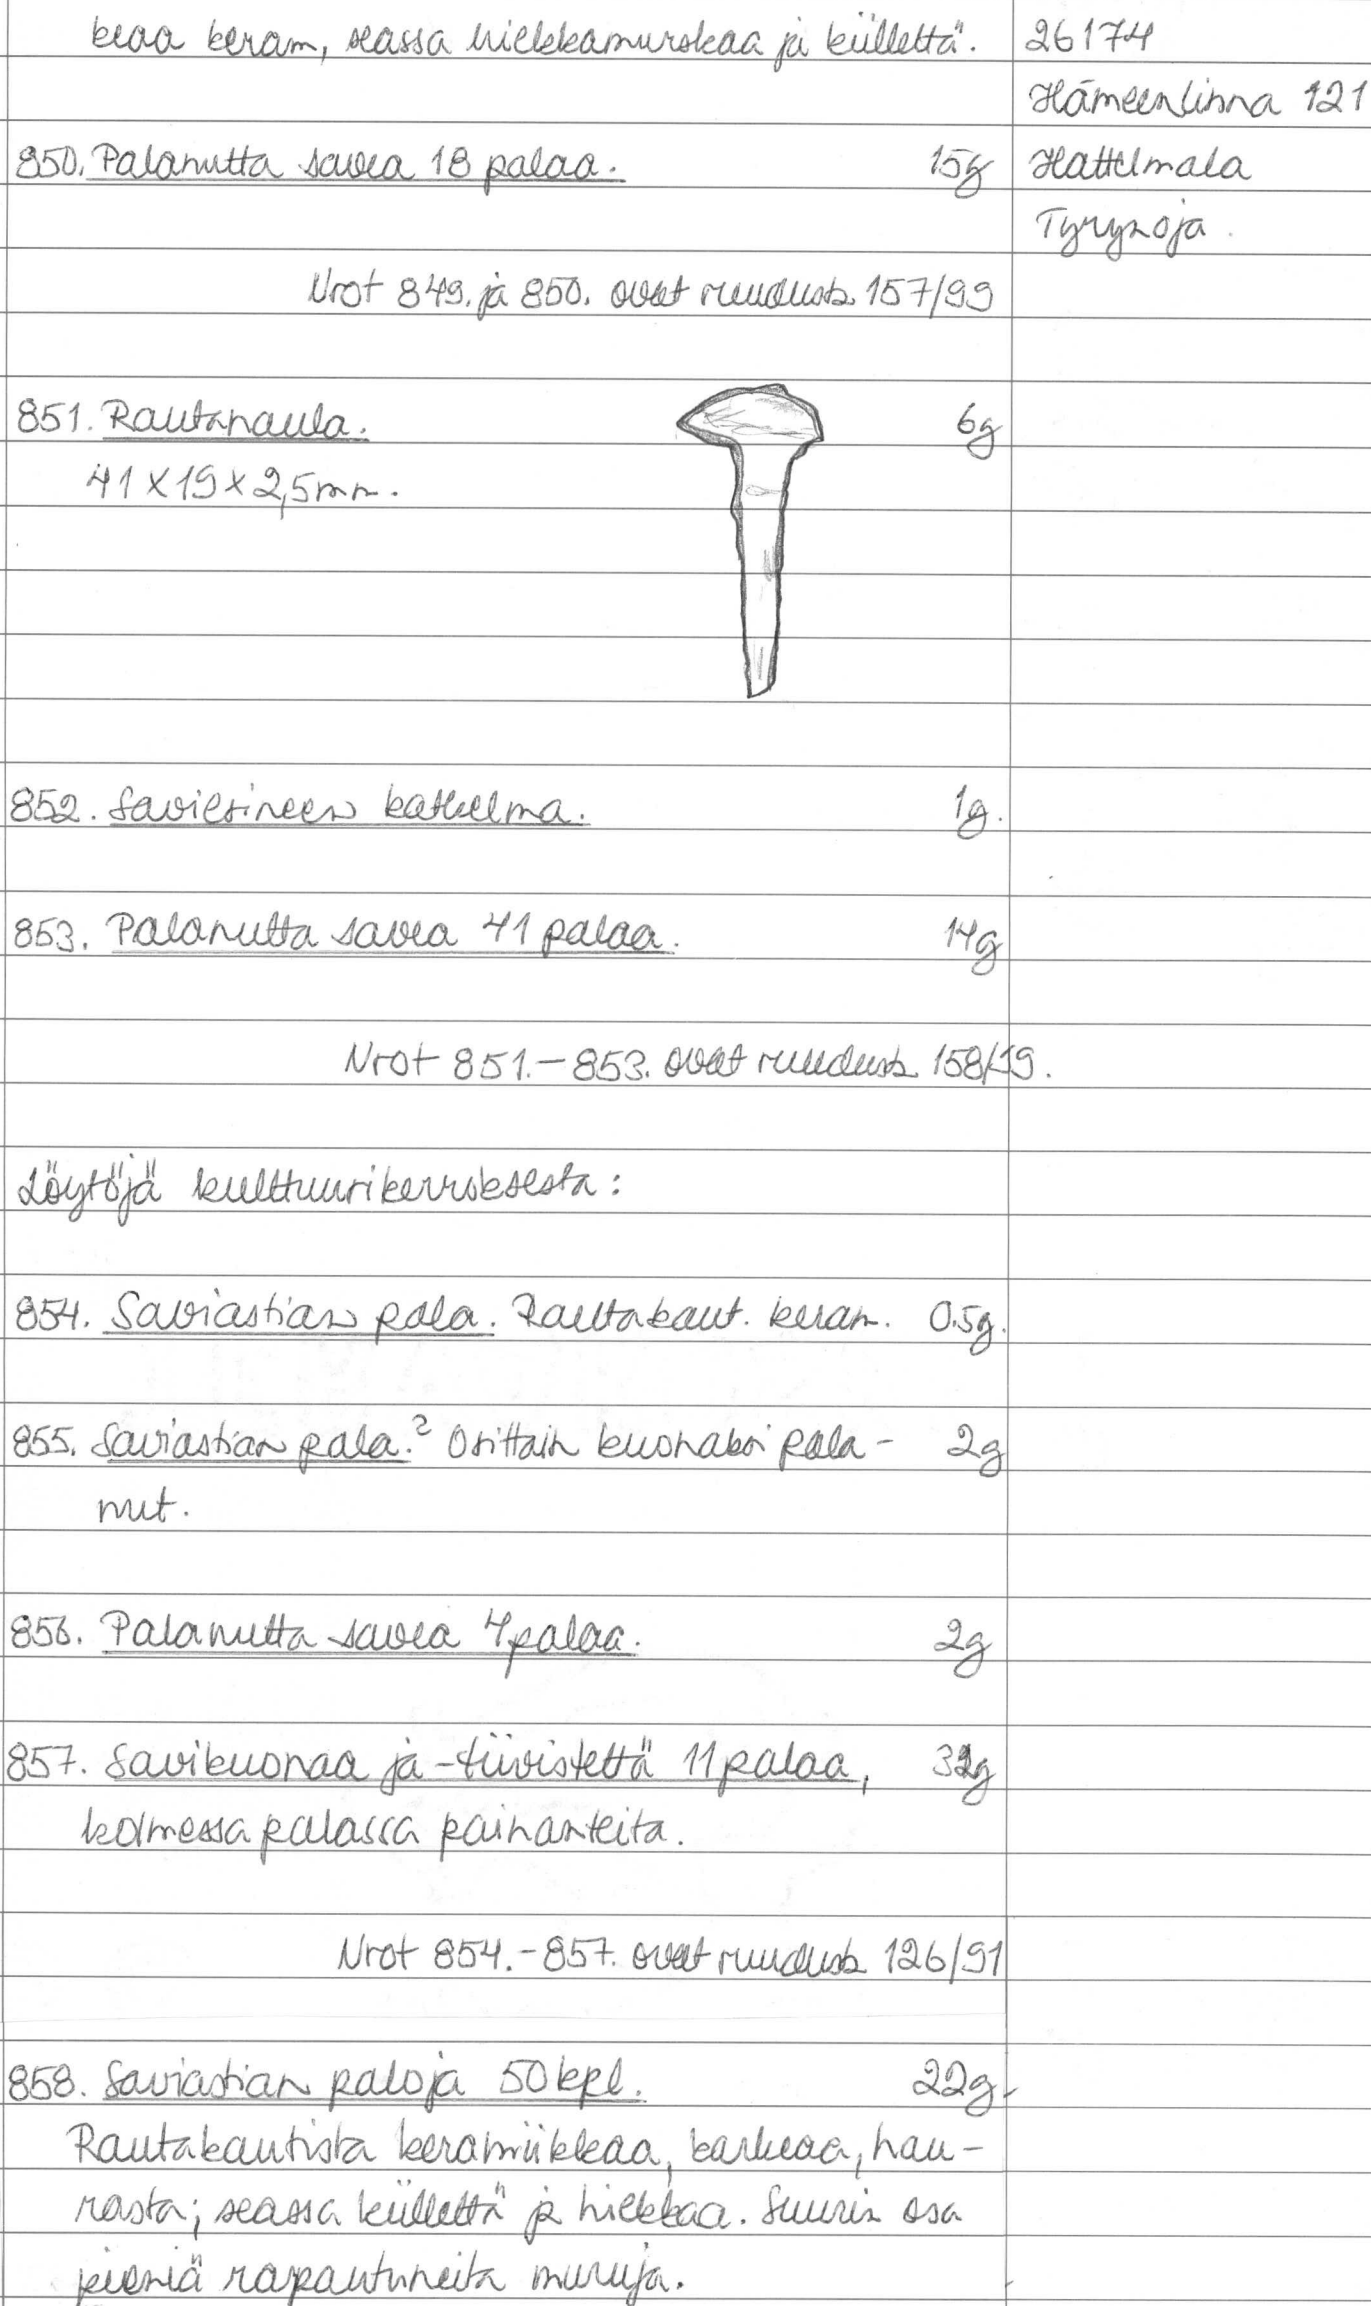 keaa keram, seassa hiekkamurskaa ja kiillettä.
26174
Hämeenlinna 121
Hattelmala
Tyrynoja.
850. Palanutta savea 18 palaa. 15g
Nrot 849. ja 850. ovat ruudusta 157/99
851. Rautanaula. 6g
41 x 19 x 2,5 mm.
852. Saviesineen katkelma. 1g.
853. Palanutta savea 41 palaa. 14g
Nrot 851.-853. ovat ruudusta 158/99.
Löytöjä kulttuurikerroksesta:
854. Saviastian pala. Rautakaut. keram. 0.5g.
855. Saviastian pala.? Osittain kuonaksi pala- 2g
nut.
856. Palanutta savea 4 palaa. 2g
857. Savikuonaa ja -tiivistettä 11 palaa, 32g
kolmessa palassa painanteita.
Nrot 854.-857. ovat ruudusta 126/91
858. Saviastian paloja 50 kpl. 22g
Rautakautista keramiikkaa, karkeaa, hau-
rasta; seassa kiillettä ja hiekkaa. Suurin osa
pieniä rapautuneita muruja.